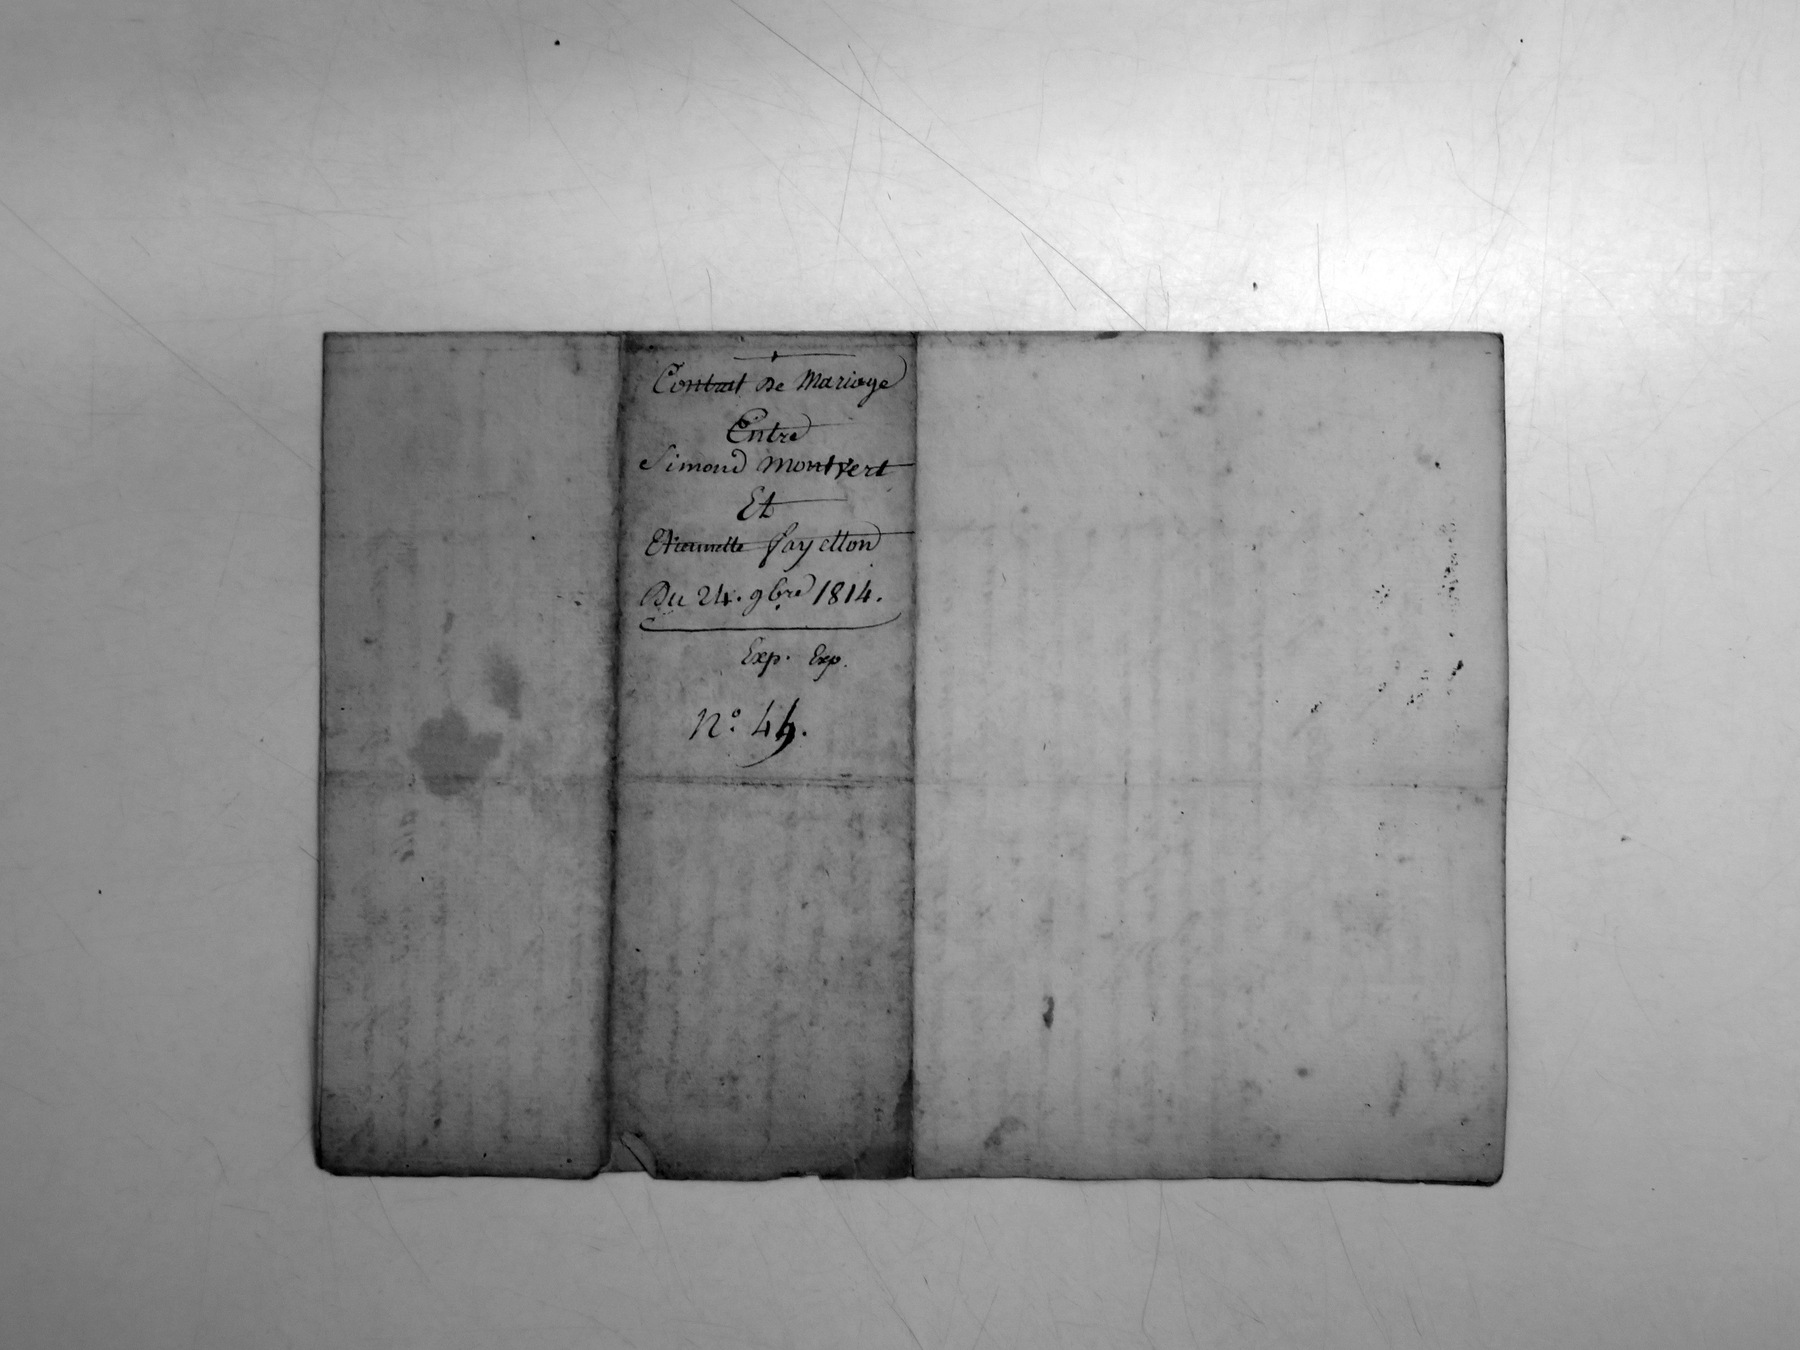 Contrat De Mariage
Entre
Simond Montvert
Et
Etiennette fayetton
Du 24. 9bre 1814.
Exp. Exp.
N°. 44.